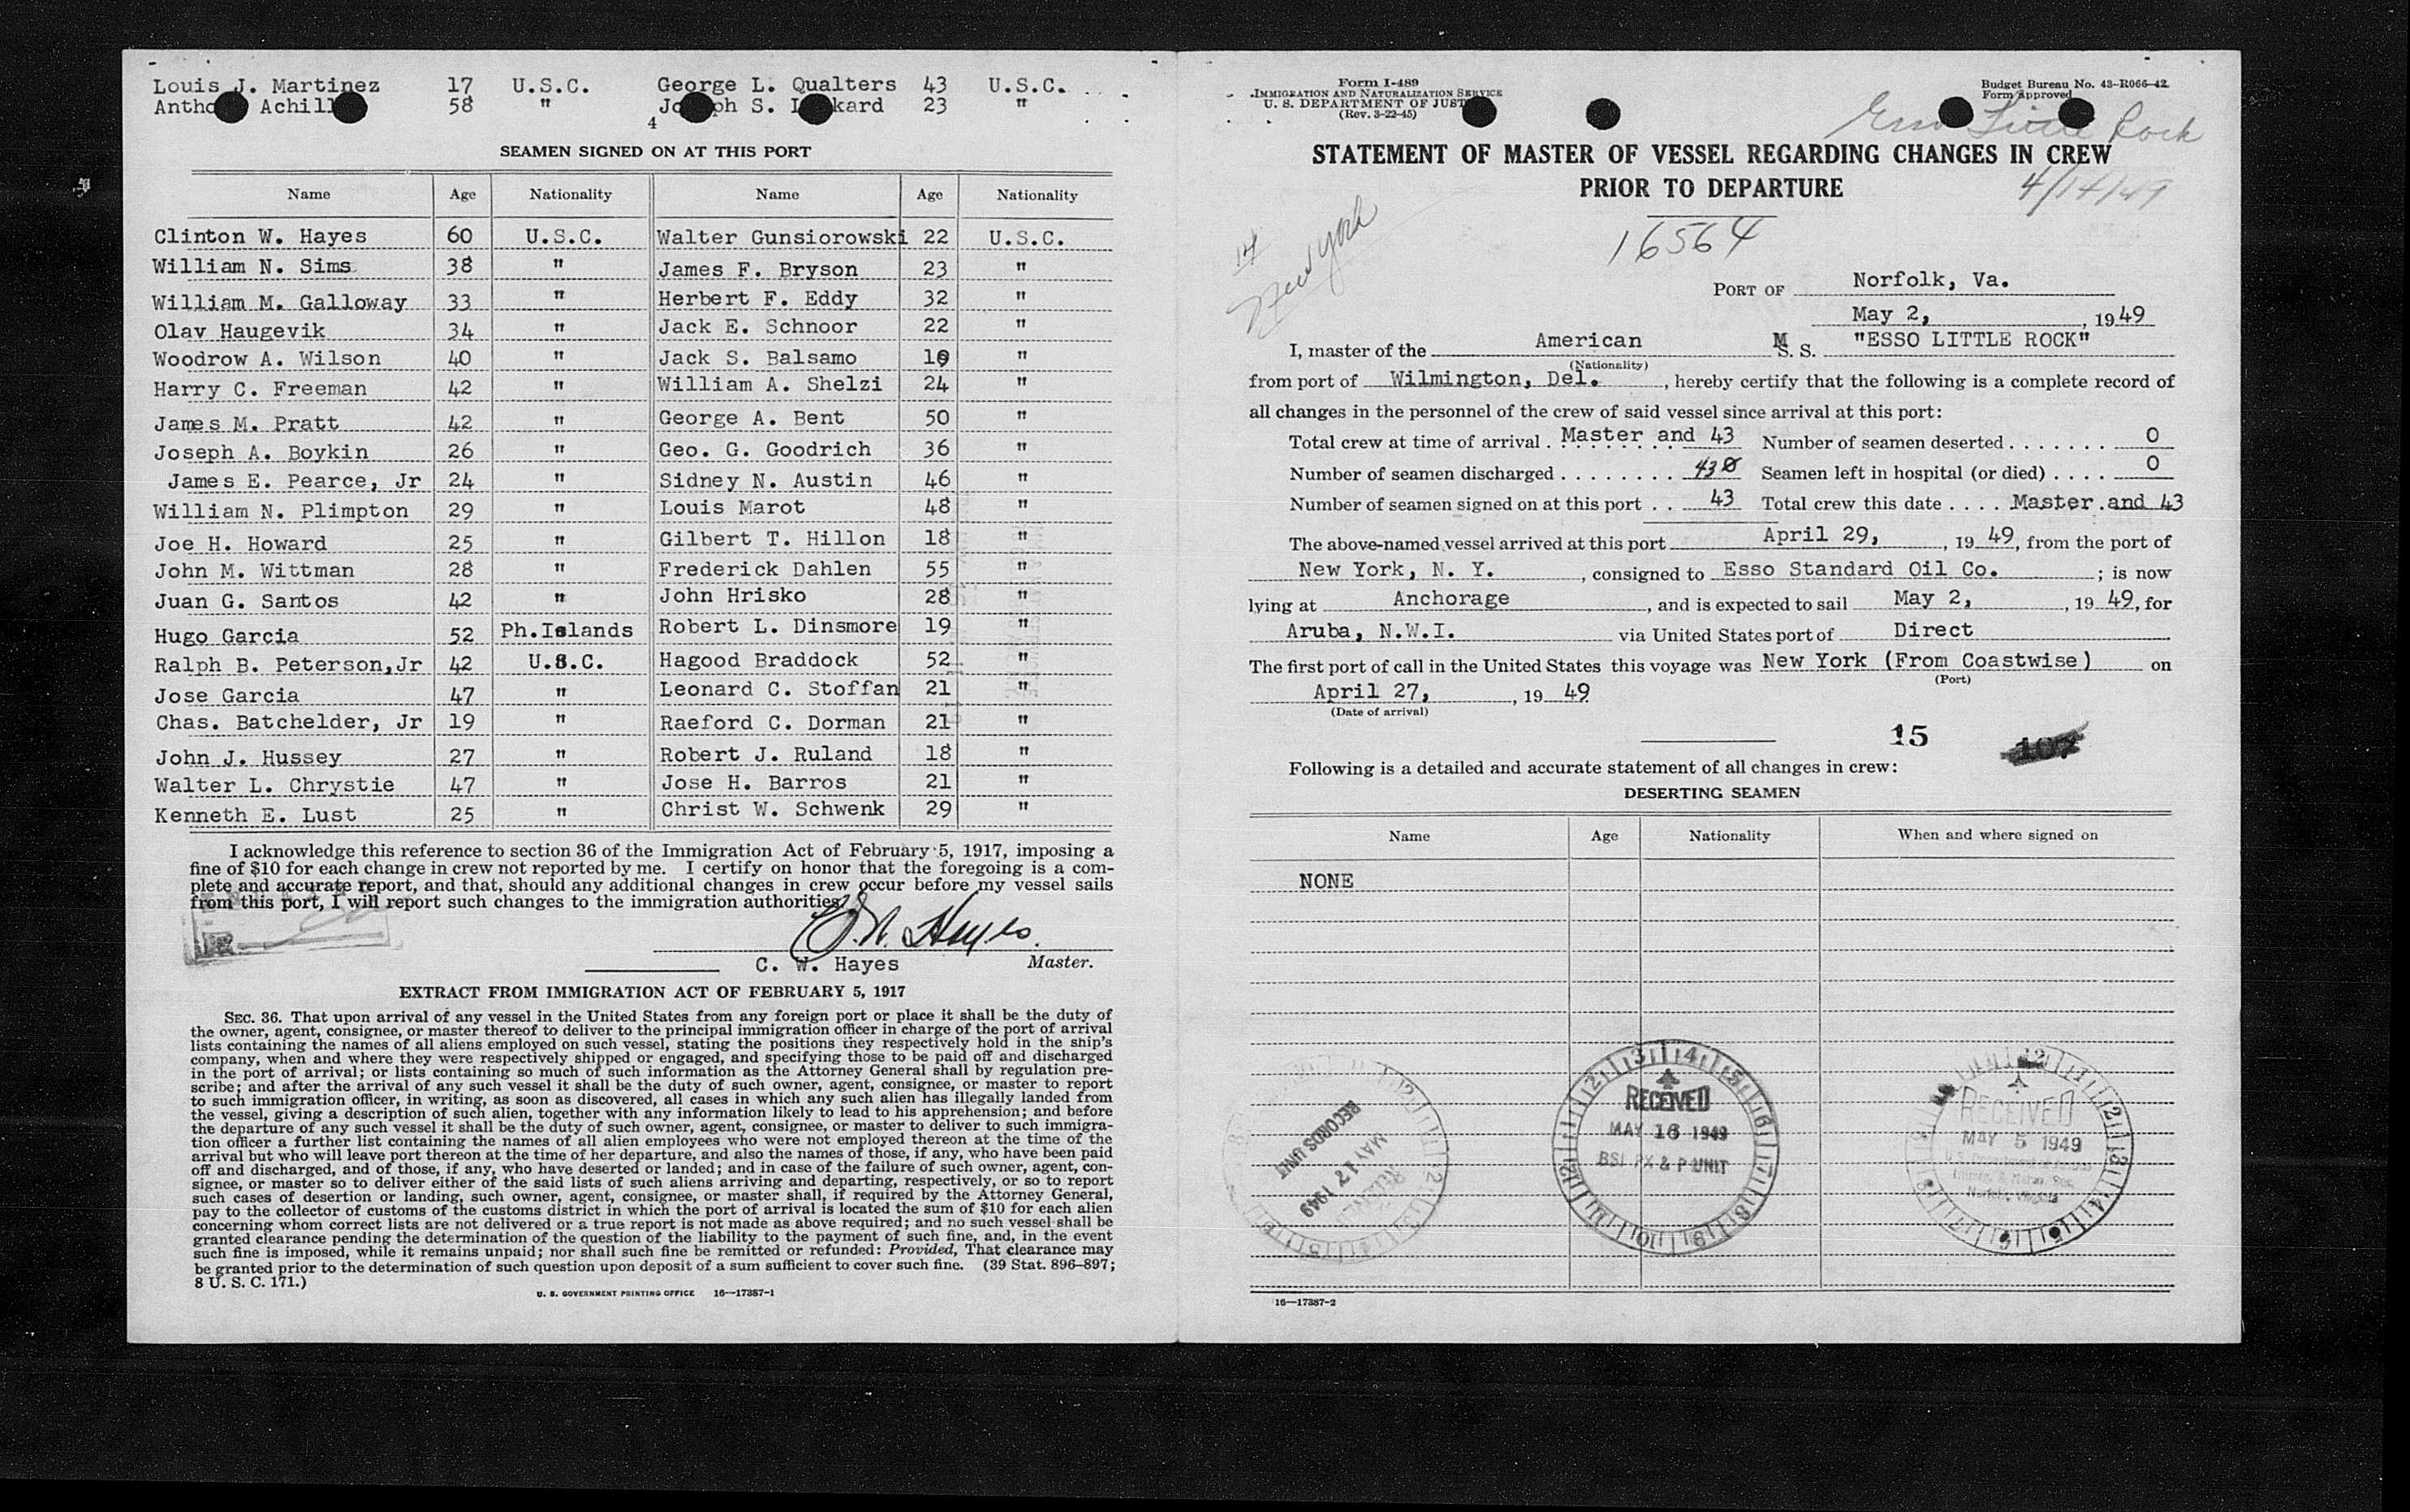 Louis J. Martinez 17 U.S.C. George L. Qualters 43 U.S.C.
Achill 58 " 23 "
4
SEAMEN SIGNED ON AT THIS PORT
Name Age Nationality Name Age Nationality
Clinton W. Hayes 60 U.S.C. Walter Gunsiorowski 22 U.S.C.
William N. Sims 38 " James F. Bryson 23 "
William M. Galloway 33 " Herbert F. Eddy 32 "
Olav Haugevik 34 " Jack E. Schnoor 22 "
Woodrow A. Wilson 40 " Jack S. Balsamo 19 "
Harry C. Freeman 42 " William A. Shelzi 24 "
James M. Pratt 42 " George A. Bent 50 "
Joseph A. Boykin 26 " Geo. G. Goodrich 36 "
James E. Pearce, Jr 24 " Sidney N. Austin 46 "
William N. Plimpton 29 " Louis Marot 48 "
Joe H. Howard 25 " Gilbert T. Hillon 18 "
John M. Wittman 28 " Frederick Dahlen 55 "
Juan G. Santos 42 " John Hrisko 28 "
Hugo Garcia 52 Ph.Islands Robert L. Dinsmore 19 "
Ralph B. Peterson,Jr 42 U.S.C. Hagood Braddock 52 "
Jose Garcia 47 " Leonard C. Stoffan 21 "
Chas. Batchelder, Jr 19 " Raeford C. Dorman 21 "
John J. Hussey 27 " Robert J. Ruland 18 "
Walter L. Chrystie 47 " Jose H. Barros 21 "
Kenneth E. Lust 25 " Christ W. Schwenk 29 "
I acknowledge this reference to section 36 of the Immigration Act of February 5, 1917, imposing a
fine of $10 for each change in crew not reported by me. I certify on honor that the foregoing is a com-
plete and accurate report, and that, should any additional changes in crew occur before my vessel sails
from this port, I will report such changes to the immigration authorities.
C. W. Hayes
C. W. Hayes Master.
EXTRACT FROM IMMIGRATION ACT OF FEBRUARY 5, 1917
SEC. 36. That upon arrival of any vessel in the United States from any foreign port or place it shall be the duty of
the owner, agent, consignee, or master thereof to deliver to the principal immigration officer in charge of the port of arrival
lists containing the names of all aliens employed on such vessel, stating the positions they respectively hold in the ship's
company, when and where they were respectively shipped or engaged, and specifying those to be paid off and discharged
in the port of arrival; or lists containing so much of such information as the Attorney General shall by regulation pre-
scribe; and after the arrival of any such vessel it shall be the duty of such owner, agent, consignee, or master to report
to such immigration officer, in writing, as soon as discovered, all cases in which any such alien has illegally landed from
the vessel, giving a description of such alien, together with any information likely to lead to his apprehension; and before
the departure of any such vessel it shall be the duty of such owner, agent, consignee, or master to deliver to such immigra-
tion officer a further list containing the names of all alien employees who were not employed thereon at the time of the
arrival but who will leave port thereon at the time of her departure, and also the names of those, if any, who have been paid
off and discharged, and of those, if any, who have deserted or landed; and in case of the failure of such owner, agent, con-
signee, or master so to deliver either of the said lists of such aliens arriving and departing, respectively, or so to report
such cases of desertion or landing, such owner, agent, consignee, or master shall, if required by the Attorney General,
pay to the collector of customs of the customs district in which the port of arrival is located the sum of $10 for each alien
concerning whom correct lists are not delivered or a true report is not made as above required; and no such vessel shall be
granted clearance pending the determination of the question of the liability to the payment of such fine, and, in the event
such fine is imposed, while it remains unpaid; nor shall such fine be remitted or refunded: Provided, That clearance may
be granted prior to the determination of such question upon deposit of a sum sufficient to cover such fine. (39 Stat. 896-897;
8 U. S. C. 171.)
U. S. GOVERNMENT PRINTING OFFICE 16—17387-1
Form I-489
IMMIGRATION AND NATURALIZATION SERVICE
U. S. DEPARTMENT OF JUST
(Rev. 3-22-45)
Budget Bureau No. 43-R066-42
Form Approved
Esso Little Rock
STATEMENT OF MASTER OF VESSEL REGARDING CHANGES IN CREW
PRIOR TO DEPARTURE
4/14/49
16564
New York
PORT OF Norfolk, Va.
May 2, 1949
I, master of the American M S. S. "ESSO LITTLE ROCK"
(Nationality)
from port of Wilmington, Del. , hereby certify that the following is a complete record of
all changes in the personnel of the crew of said vessel since arrival at this port:
Total crew at time of arrival . Master and 43 Number of seamen deserted . . . . . . . 0
Number of seamen discharged . . . . . . . . 43 0 Seamen left in hospital (or died) . . . . 0
Number of seamen signed on at this port . . 43 Total crew this date . . . . Master and 43
The above-named vessel arrived at this port April 29, , 19 49, from the port of
New York, N. Y. , consigned to Esso Standard Oil Co. ; is now
lying at Anchorage , and is expected to sail May 2, , 19 49, for
Aruba, N.W.I. via United States port of Direct
The first port of call in the United States this voyage was New York (From Coastwise) on
(Port)
April 27, , 19 49
(Date of arrival)
15
107
Following is a detailed and accurate statement of all changes in crew:
DESERTING SEAMEN
Name Age Nationality When and where signed on
NONE
RECORDS UNIT
MAY 17 1949
RECEIVED
RECEIVED
MAY 16 1949
BSI PX & P UNIT
RECEIVED
MAY 5 1949
Norfolk, Virginia
16—17387-2